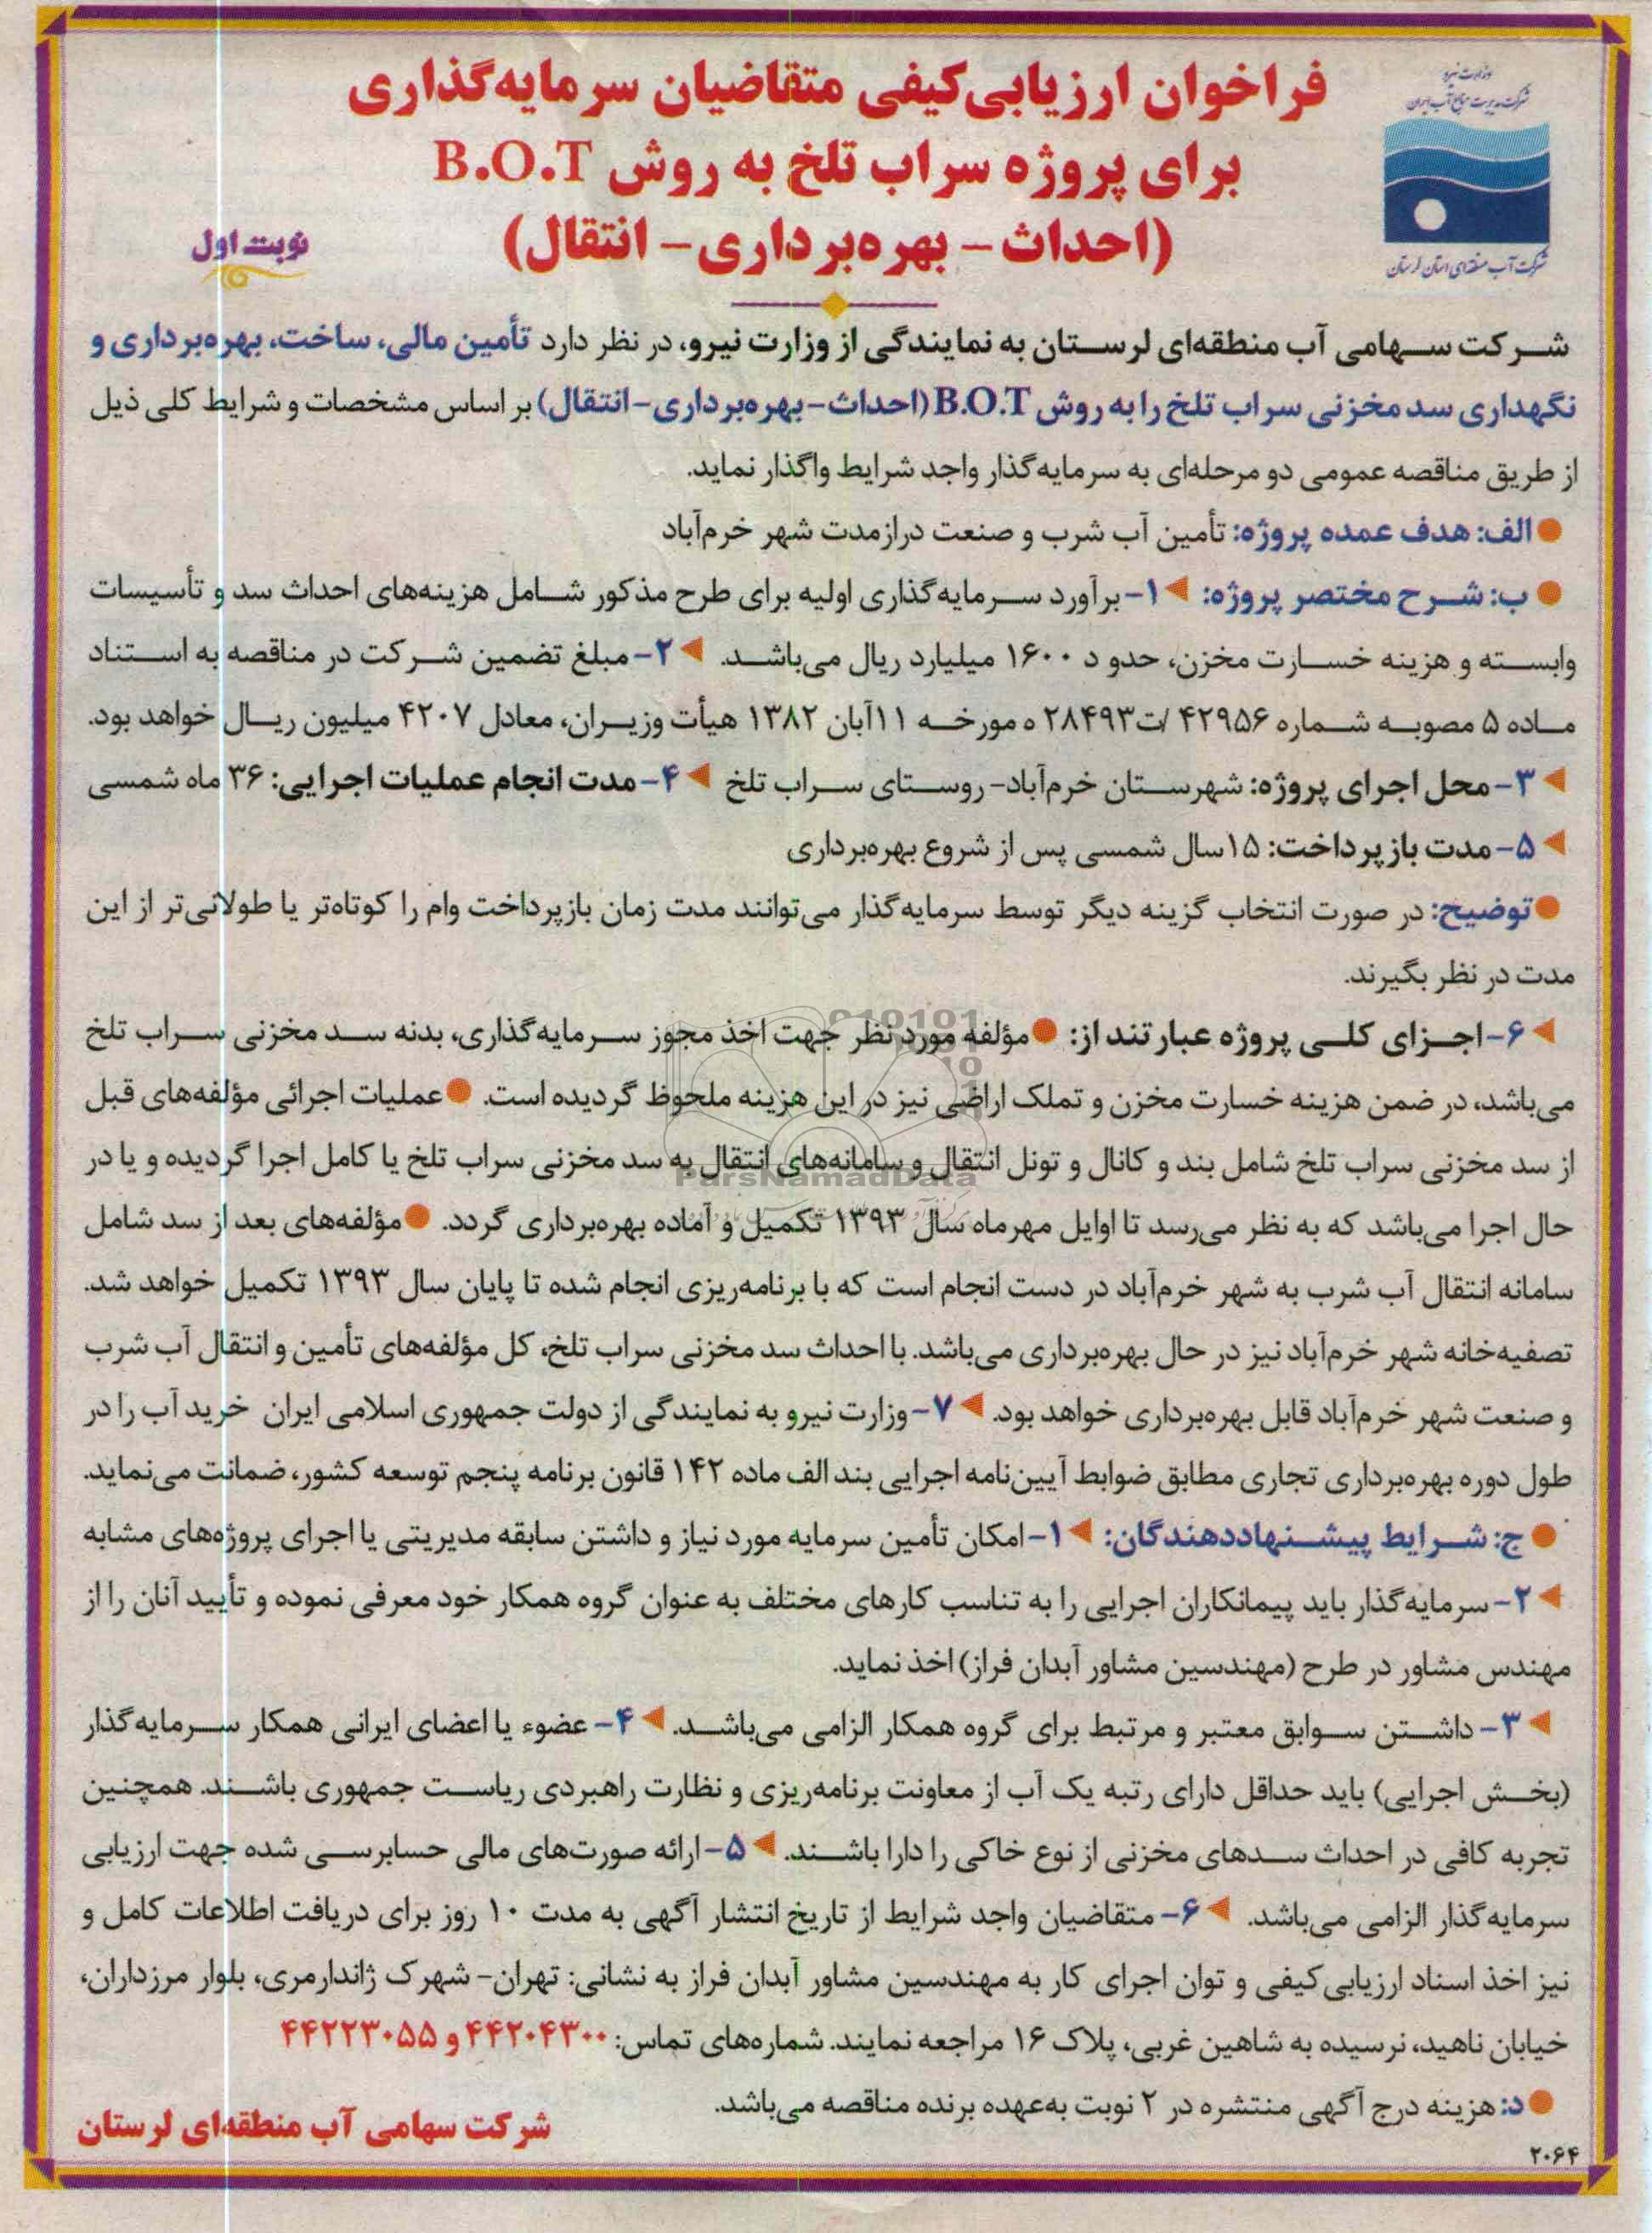 وزارت نیرو
شرکت مدیریت منابع آب ایران
شرکت آب منطقه‌ای استان لرستان
فراخوان ارزیابی‌کیفی متقاضیان سرمایه‌گذاری
برای پروژه سراب تلخ به روش B.O.T
(احداث - بهره‌برداری- انتقال)
نوبت اول
شرکت سهامی آب منطقه‌ای لرستان به نمایندگی از وزارت نیرو، در نظر دارد تأمین مالی، ساخت، بهره‌برداری و
نگهداری سد مخزنی سراب تلخ را به روش B.O.T (احداث- بهره‌برداری- انتقال) بر اساس مشخصات و شرایط کلی ذیل
از طریق مناقصه عمومی دو مرحله‌ای به سرمایه‌گذار واجد شرایط واگذار نماید.
● الف: هدف عمده پروژه: تأمین آب شرب و صنعت درازمدت شهر خرم‌آباد
● ب: شرح مختصر پروژه: ◄۱- برآورد سرمایه‌گذاری اولیه برای طرح مذکور شامل هزینه‌های احداث سد و تأسیسات
وابسته و هزینه خسارت مخزن، حدو د ۱۶۰۰ میلیارد ریال می‌باشد. ◄۲- مبلغ تضمین شرکت در مناقصه به استناد
ماده ۵ مصوبه شماره ۴۲۹۵۶ /ت۲۸۴۹۳ ه مورخه ۱۱آبان ۱۳۸۲ هیأت وزیران، معادل ۴۲۰۷ میلیون ریال خواهد بود.
◄۳- محل اجرای پروژه: شهرستان خرم‌آباد- روستای سراب تلخ ◄۴- مدت انجام عملیات اجرایی: ۳۶ ماه شمسی
◄۵- مدت بازپرداخت: ۱۵سال شمسی پس از شروع بهره‌برداری
● توضیح: در صورت انتخاب گزینه دیگر توسط سرمایه‌گذار می‌توانند مدت زمان بازپرداخت وام را کوتاه‌تر یا طولانی‌تر از این
مدت در نظر بگیرند.
◄۶- اجزای کلی پروژه عبارتند از: ● مؤلفه موردنظر جهت اخذ مجوز سرمایه‌گذاری، بدنه سد مخزنی سراب تلخ
می‌باشد، در ضمن هزینه خسارت مخزن و تملک اراضی نیز در این هزینه ملحوظ گردیده است. ● عملیات اجرائی مؤلفه‌های قبل
از سد مخزنی سراب تلخ شامل بند و کانال و تونل انتقال و سامانه‌های انتقال به سد مخزنی سراب تلخ یا کامل اجرا گردیده و یا در
ParsNamadData
حال اجرا می‌باشد که به نظر می‌رسد تا اوایل مهرماه سال ۱۳۹۳ تکمیل و آماده بهره‌برداری گردد. ● مؤلفه‌های بعد از سد شامل
سامانه انتقال آب شرب به شهر خرم‌آباد در دست انجام است که با برنامه‌ریزی انجام شده تا پایان سال ۱۳۹۳ تکمیل خواهد شد.
تصفیه‌خانه شهر خرم‌آباد نیز در حال بهره‌برداری می‌باشد. با احداث سد مخزنی سراب تلخ، کل مؤلفه‌های تأمین و انتقال آب شرب
و صنعت شهر خرم‌آباد قابل بهره‌برداری خواهد بود. ◄۷- وزارت نیرو به نمایندگی از دولت جمهوری اسلامی ایران خرید آب را در
طول دوره بهره‌برداری تجاری مطابق ضوابط آیین‌نامه اجرایی بند الف ماده ۱۴۲ قانون برنامه پنجم توسعه کشور، ضمانت می‌نماید.
● ج: شرایط پیشنهاددهندگان: ◄۱- امکان تأمین سرمایه مورد نیاز و داشتن سابقه مدیریتی یا اجرای پروژه‌های مشابه
◄۲- سرمایه‌گذار باید پیمانکاران اجرایی را به تناسب کارهای مختلف به عنوان گروه همکار خود معرفی نموده و تأیید آنان را از
مهندس مشاور در طرح (مهندسین مشاور آبدان فراز) اخذ نماید.
◄۳- داشتن سوابق معتبر و مرتبط برای گروه همکار الزامی می‌باشد. ◄۴- عضوء یا اعضای ایرانی همکار سرمایه‌گذار
(بخش اجرایی) باید حداقل دارای رتبه یک آب از معاونت برنامه‌ریزی و نظارت راهبردی ریاست جمهوری باشند. همچنین
تجربه کافی در احداث سدهای مخزنی از نوع خاکی را دارا باشند. ◄۵- ارائه صورت‌های مالی حسابرسی شده جهت ارزیابی
سرمایه‌گذار الزامی می‌باشد. ◄۶- متقاضیان واجد شرایط از تاریخ انتشار آگهی به مدت ۱۰ روز برای دریافت اطلاعات کامل و
نیز اخذ اسناد ارزیابی‌کیفی و توان اجرای کار به مهندسین مشاور آبدان فراز به نشانی: تهران- شهرک ژاندارمری، بلوار مرزداران،
خیابان ناهید، نرسیده به شاهین غربی، پلاک ۱۶ مراجعه نمایند. شماره‌های تماس: ۴۴۲۰۴۳۰۰ و ۴۴۲۲۳۰۵۵
● د: هزینه درج آگهی منتشره در ۲ نوبت به‌عهده برنده مناقصه می‌باشد.
شرکت سهامی آب منطقه‌ای لرستان
۲۰۶۴